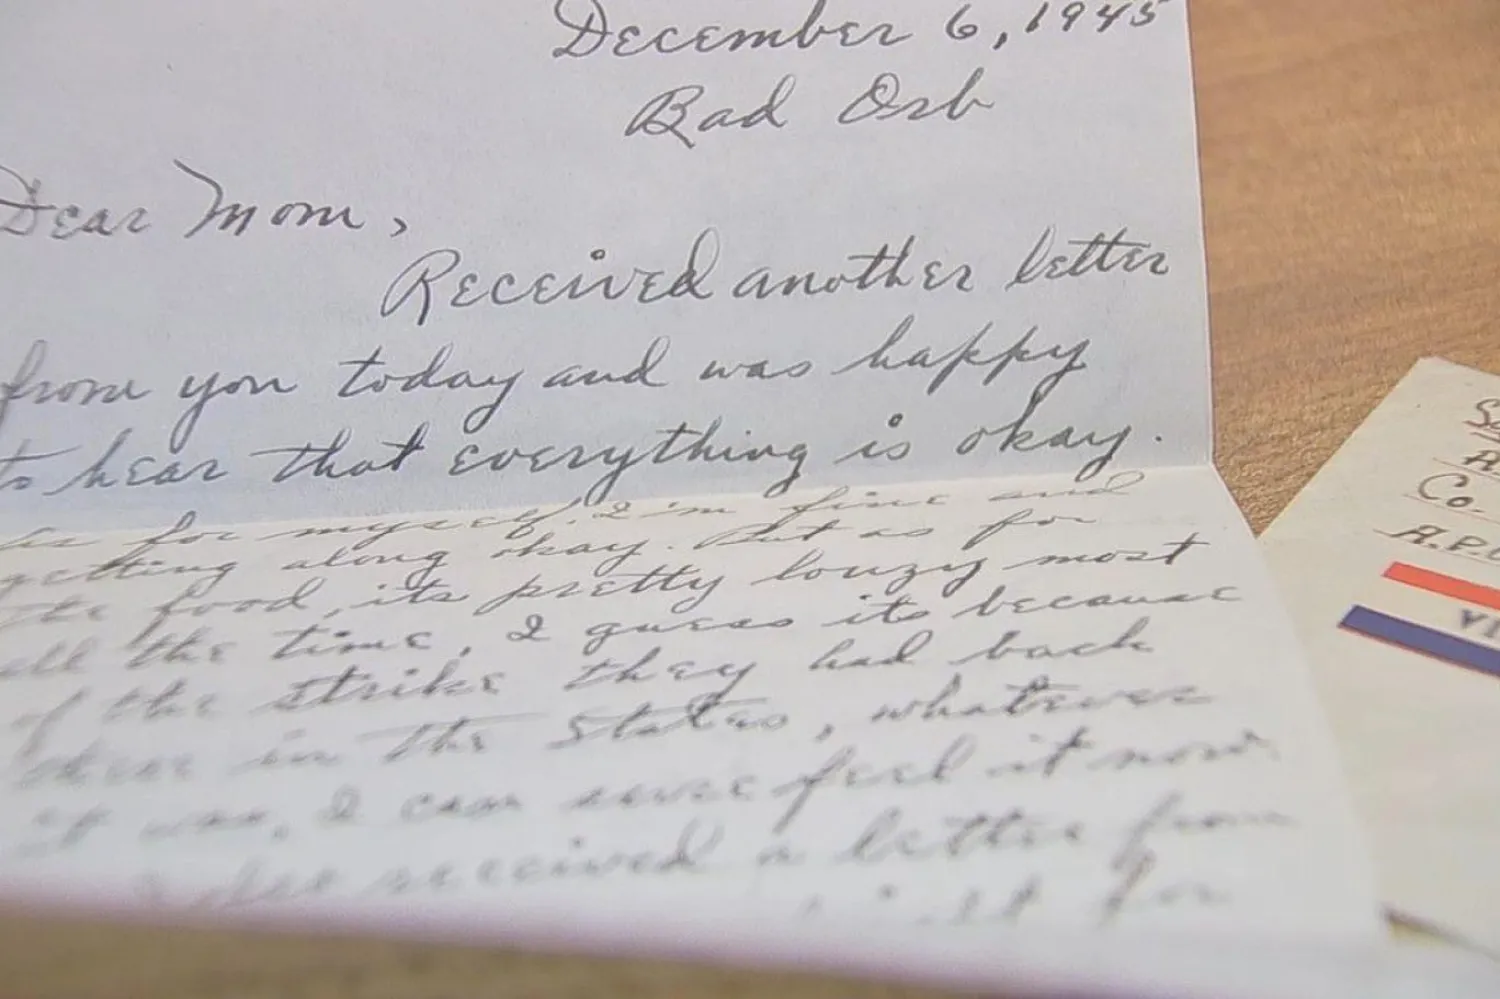 December 6, 1945
Bad Orb
Dear Mom,
Received another letter
from you today and was happy
to hear that everything is okay.
As for myself, I'm fine and
getting along okay. But as for
the food, its pretty louzy most
all the time, I guess its because
of the strike they had back
there in the States, whatever
it was, I can sure feel it now.
I also received a letter from
for
Co.
A.P.O
VI